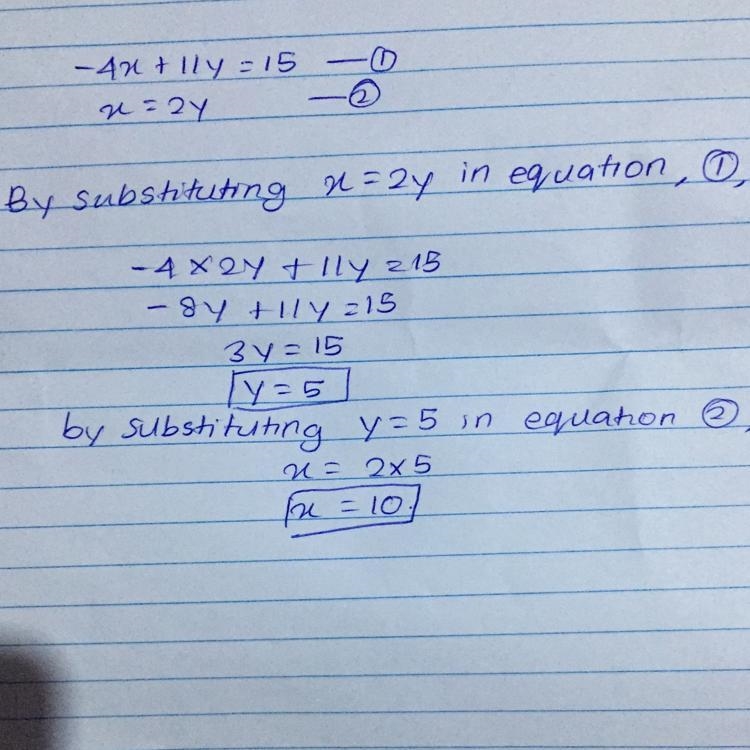 -4x + 11y = 15 — ①
x = 2y — ②
By substituting x = 2y in equation, ①,
-4 × 2y + 11y = 15
-8y + 11y = 15
3y = 15
y = 5
by substituting y = 5 in equation ②,
x = 2×5
x = 10.